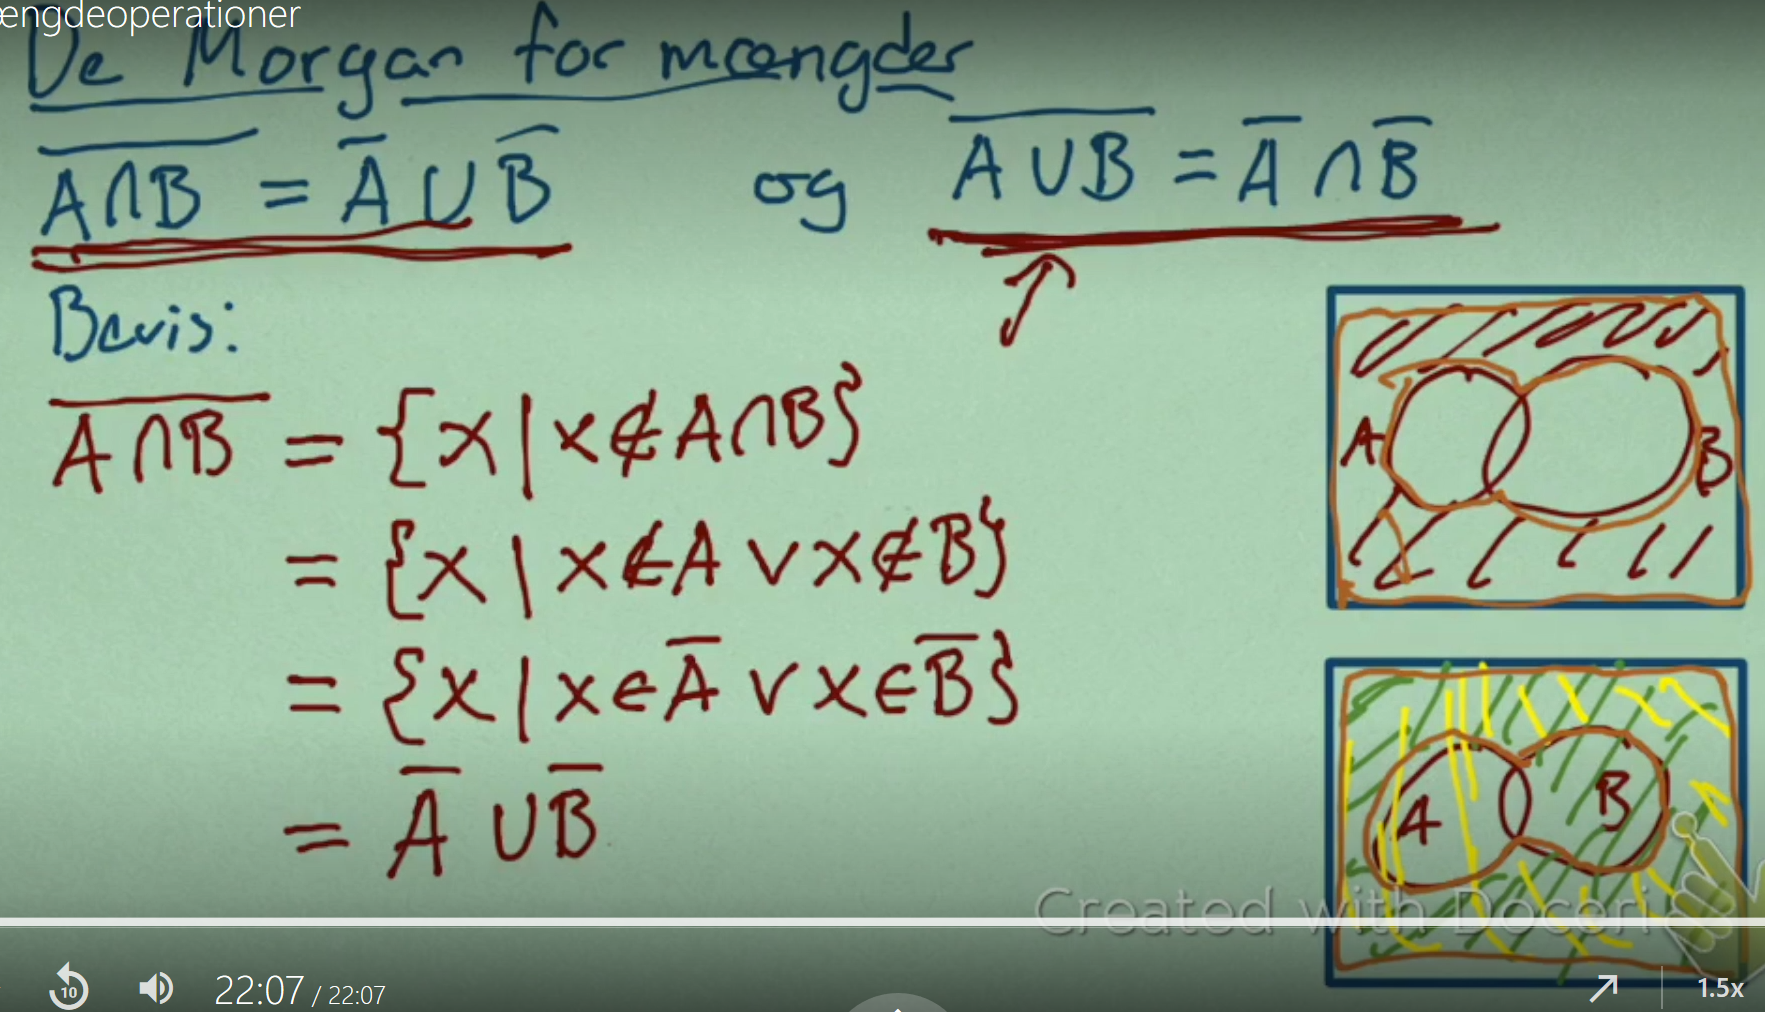 ængdeoperationer
De Morgan for mængder
A̅∩̅B̅ = A̅ ∪ B̅ og A̅∪̅B̅ = A̅ ∩ B̅
Bevis:
A̅∩̅B̅ = {x | x ∉ A∩B}
= {x | x ∉ A ∨ x ∉ B}
= {x | x ∈ A̅ ∨ x ∈ B̅}
= A̅ ∪ B̅
A B
A B
Created with Doceri
10 22:07 / 22:07 1.5x